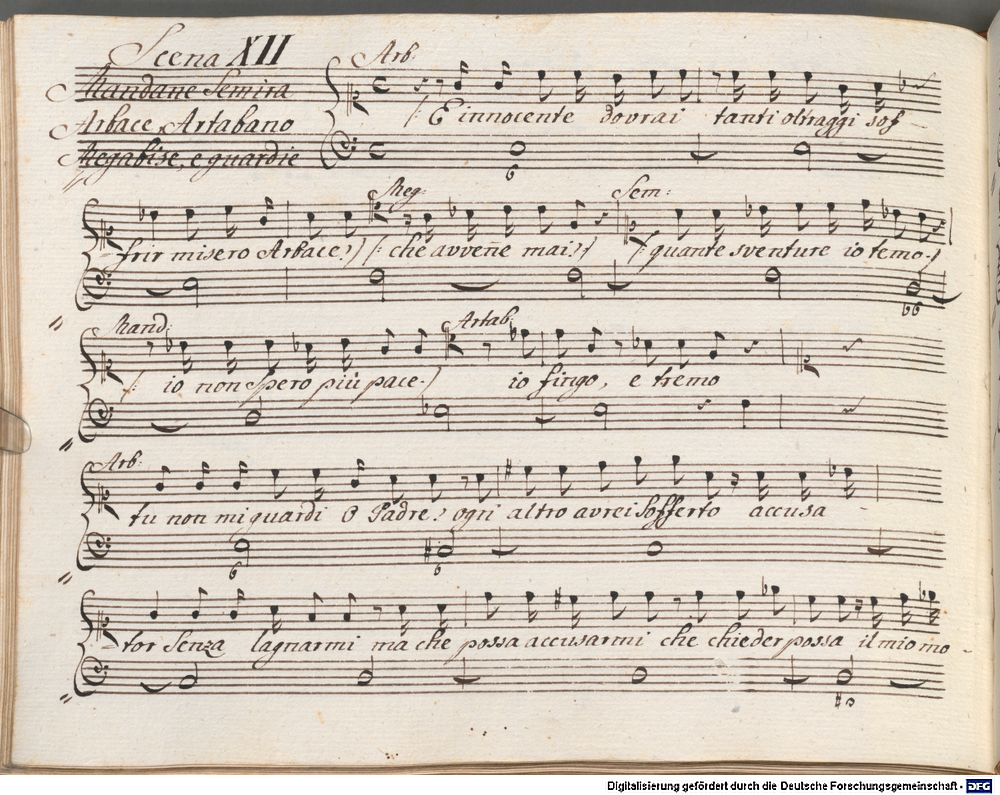 Scena XII
Mandane Semira
Arbace, Artabano
Megabise, e guardie
Arb:
/: E innocente dovrai tanti oltraggi sof -
6
Meg: Sem:
frir misero Arbace? /: che avvene mai? /: quante sventure io temo.
6b
Mand: Artab:
/: io non spero più pace. io fingo, e tremo
Arb:
tu non mi guardi o Padre? ogni altro avrei sofferto accusa -
6 6
tor senza lagnarmi ma che possa accusarmi che chieder possa il mio mo -
Digitalisierung gefördert durch die Deutsche Forschungsgemeinschaft - DFG